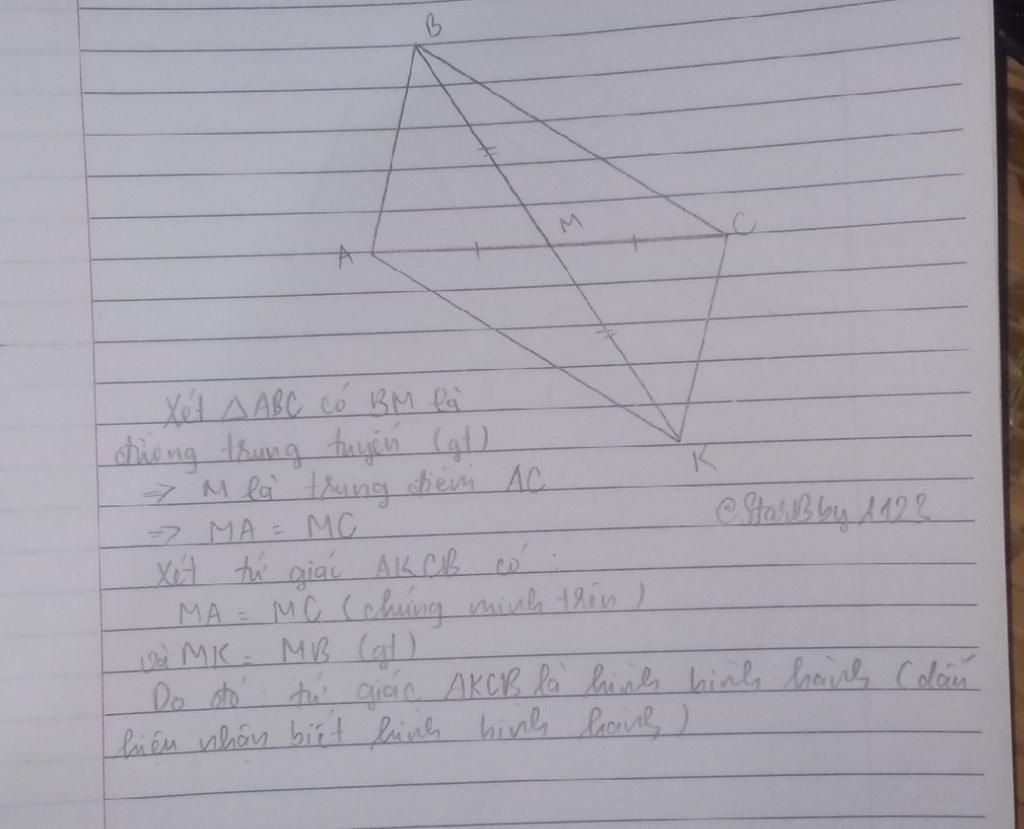 B
M
C
A
K
Xét △ABC có BM là
đường trung tuyến (gt)
=> M là trung điểm AC
=> MA = MC
@StarBby1123
Xét tứ giác AKCB có :
MA = MC (chứng minh trên)
và MK = MB (gt)
Do đó : tứ giác AKCB là hình bình hành (dấu
hiệu nhận biết hình bình hành)